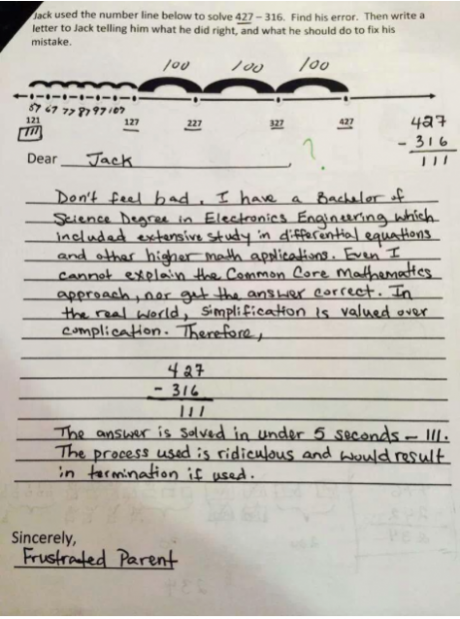 Jack used the number line below to solve 427 – 316. Find his error. Then write a
letter to Jack telling him what he did right, and what he should do to fix his
mistake.
100 100 100
57 67 77 87 97 107
121 127 227 327 427
111
427
- 316
111
?
Dear Jack ,
Don't feel bad. I have a Bachelor of
Science Degree in Electronics Engineering which
included extensive study in differential equations
and other higher math applications. Even I
cannot explain the Common Core Mathematics
approach, nor get the answer correct. In
the real world, simplification is valued over
complication. Therefore,
427
- 316
111
The answer is solved in under 5 seconds – 111.
The process used is ridiculous and would result
in termination if used.
Sincerely,
Frustrated Parent